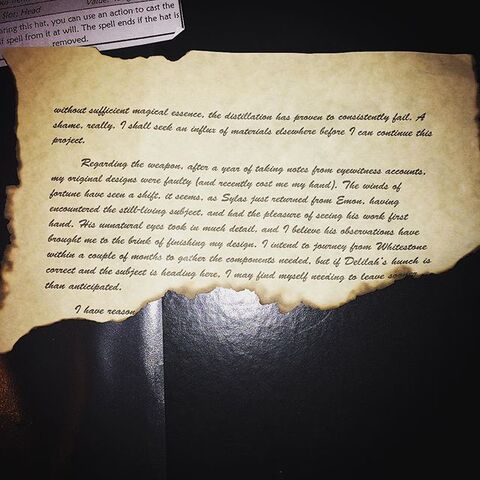 Slot: Head
Value:
ring this hat, you can use an action to cast the
spell from it at will. The spell ends if the hat is
removed.
without sufficient magical essence, the distillation has proven to consistently fail. A
shame, really. I shall seek an influx of materials elsewhere before I can continue this
project.
Regarding the weapon, after a year of taking notes from eyewitness accounts,
my original designs were faulty (and recently cost me my hand). The winds of
fortune have seen a shift, it seems, as Sylas just returned from Emon, having
encountered the still-living subject, and had the pleasure of seeing his work first
hand. His unnatural eyes took in much detail, and I believe his observations have
brought me to the brink of finishing my design. I intend to journey from Whitestone
within a couple of months to gather the components needed, but if Delilah's hunch is
correct and the subject is heading here, I may find myself needing to leave sooner
than anticipated.
I have reason